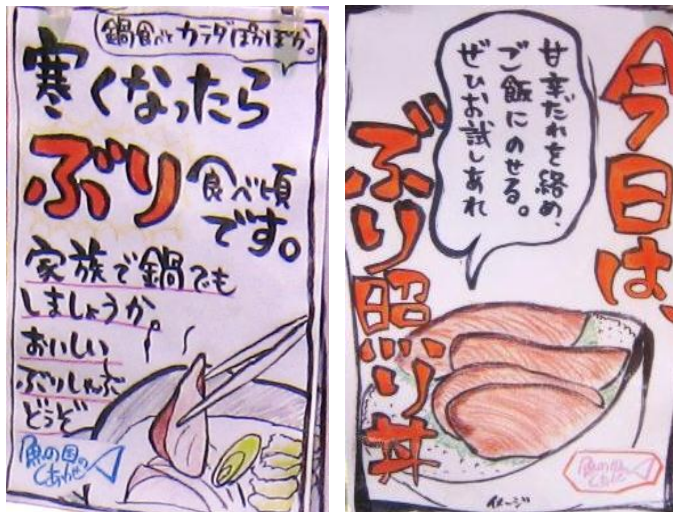 鍋食べてカラダぽかぽか。
寒くなったら
ぶり食べ頃
です。
家族で鍋でも
しましょうか。
おいしい
ぶりしゃぶ
どうぞ
魚の国の
しあわせ
今日は、
ぶり照り丼
甘辛だれを絡め、
ご飯にのせる。
ぜひお試しあれ
イメージ
魚の国の
しあわせ